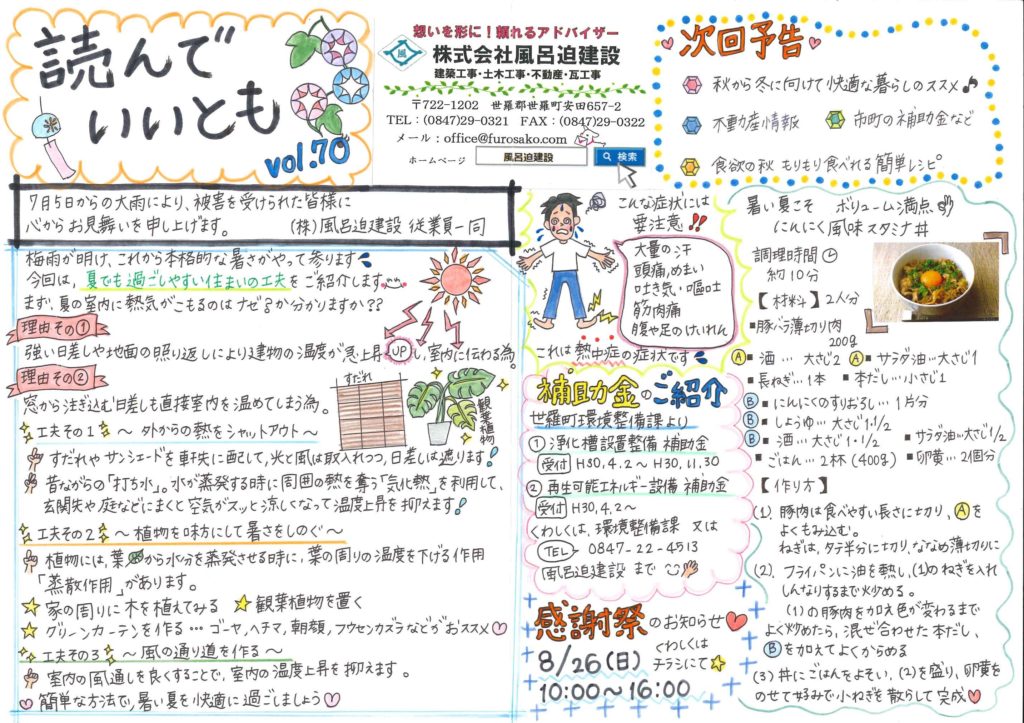 読んで
いいとも
vol.70
想いを形に!頼れるアドバイザー
株式会社風呂迫建設
建築工事・土木工事・不動産・瓦工事
〒722-1202 世羅郡世羅町安田657-2
TEL:(0847)29-0321 FAX:(0847)29-0322
メール:office@furosako.com
ホームページ 風呂迫建設 検索
次回予告
秋から冬に向けて快適な暮らしのススメ♪
不動産情報 市町の補助金など
食欲の秋 もりもり食べれる簡単レシピ
7月5日からの大雨により、被害を受けられた皆様に
心からお見舞いを申し上げます。 (株)風呂迫建設 従業員一同
梅雨が明け、これから本格的な暑さがやって参ります
今回は、夏でも過ごしやすい住まいの工夫をご紹介します
まず、夏の室内に熱気がこもるのはナゼ?か分かりますか??
理由その①
強い日差しや地面の照り返しにより建物の温度が急上昇UPし、室内に伝わる為。
理由その②
窓から注ぎ込む日差しも直接室内を温めてしまう為。
すだれ
観葉植物
工夫その1 ~ 外からの熱をシャットアウト~
すだれやサンシェードを軒先に配して、光と風は取入れつつ、日差しは遮ります!
昔ながらの「打ち水」。水が蒸発する時に周囲の熱を奪う"気化熱"を利用して、
玄関先や庭などにまくと空気がスッと涼しくなって温度上昇を抑えます!
工夫その2 ~ 植物を味方にして暑さをしのぐ~
植物には、葉から水分を蒸発させる時に、葉の周りの温度を下げる作用
「蒸散作用」があります。
☆家の周りに木を植えてみる ☆観葉植物を置く
☆グリーンカーテンを作る…ゴーヤ,ヘチマ,朝顔,フウセンカズラなどがおススメ♡
工夫その3 ~ 風の通り道を作る~
室内の風通しを良くすることで、室内の温度上昇を抑えます。
♡簡単な方法で、暑い夏を快適に過ごしましょう♡
こんな症状には
要注意!!
大量の汗
頭痛,めまい
吐き気・嘔吐
筋肉痛
腹や足のけいれん
これは熱中症の症状です
補助金のご紹介
世羅町環境整備課より
①浄化槽設置整備 補助金
受付 H30.4.2~H30.11.30
②再生可能エネルギー設備 補助金
受付 H30.4.2~
くわしくは、環境整備課 又は
TEL 0847-22-4513
風呂迫建設 まで
感謝祭のお知らせ♡
8/26(日) くわしくは
チラシにて☆
10:00~16:00
暑い夏こそ ボリューム満点
にんにく風味スタミナ丼
調理時間
約10分
【材料】2人分
■豚バラ薄切り肉
200g
Ⓐ■酒…大さじ2 Ⓐ■サラダ油…大さじ1
■長ねぎ…1本 ■本だし…小さじ1
Ⓑ■にんにくのすりおろし…1片分
Ⓑ■しょうゆ…大さじ1・1/2
Ⓑ■酒…大さじ1・1/2 ■サラダ油…大さじ1/2
■ごはん…2杯(400g) ■卵黄…2個分
【作り方】
(1). 豚肉は食べやすい長さに切り、Ⓐを
よくもみ込む。
ねぎは、タテ半分に切り、ななめ薄切りに
(2). フライパンに油を熱し、(1)のねぎを入れ
しんなりするまで炒める。
(1)の豚肉を加え色が変わるまで
よく炒めたら、混ぜ合わせた本だし、
Ⓑを加えてよくからめる
(3) 丼にごはんをよそい、(2)を盛り、卵黄を
のせて好みで小ねぎを散らして完成♡